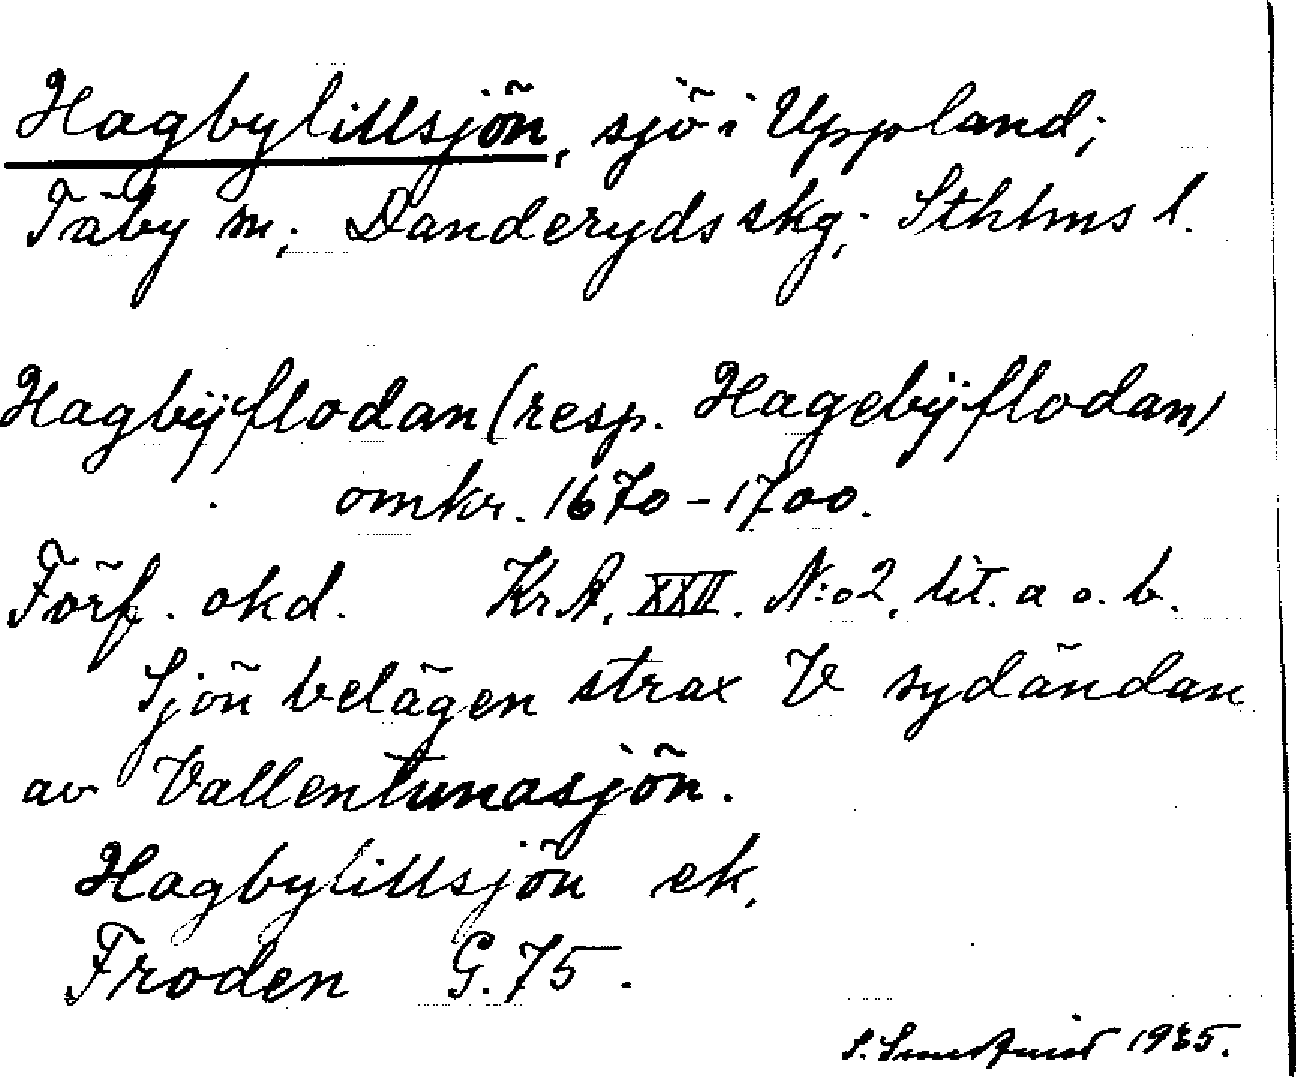 Hagbylillsjön, sjö i Uppland;
Täby sn; Danderyds skg; Sthlms l.
Hagbÿflodan (resp. Hagebÿflodan)
omkr. 1670-1700.
Förf. okd. KrA. XXII. N:o 2, lit. a o. b.
Sjön belägen strax V sydändan
av Vallentunasjön.
Hagbylillsjön ek.
Froden G. 75.
S. 1935.